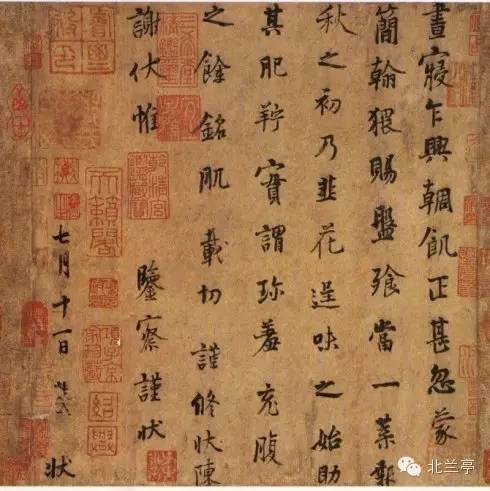 晝寢乍興輖飢正甚忽蒙
簡翰猥賜盤飧當一葉報
秋之初乃韭花逞味之始助
其肥羜實謂珍羞充腹
之餘銘肌載切謹修狀陳
謝伏惟
鑒察謹狀
七月十一日 狀
天籟閣
北兰亭